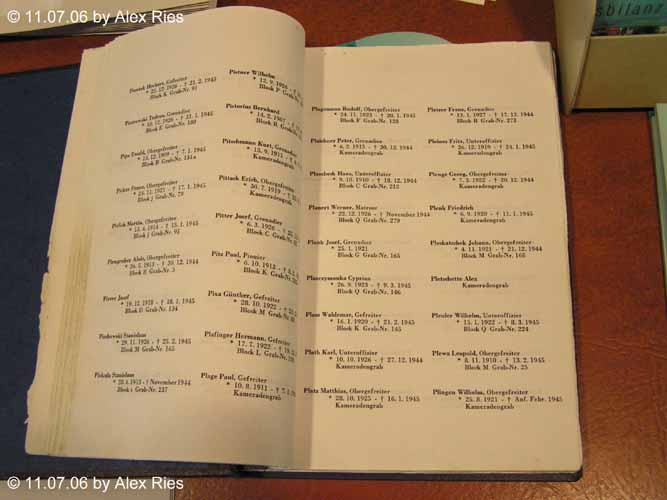 © 11.07.06 by Alex Ries
sbilanz
Pietrek Herbert, Gefreiter
Block K Grab-Nr. 91
Piotrowski Tadeus, Grenadier
Block E Grab-Nr. 180
Pipa Ewald, Obergefreiter
* 15. 12. 1909 - † 7. 1. 1945
Block B Grab-Nr. 131a
† 17. 1. 1945
Block J Grab-Nr. 79
Martin, Obergefreiter
† 15. 1. 1945
Block J Grab-Nr. 91
Alois, Obergefreiter
† 20. 12. 1944
Grab-Nr. 5
Pirrer Josef
* 19. 12. 1918 - † 18. 1. 1945
Block D Grab-Nr. 134
Stanislaus
* 29. 11. 1926 - † 25. 2. 1945
Block M Grab-Nr. 165
Stanislaus
† November 1944
Grab-Nr. 237
Pistner Wilhelm
* 12. 9. 1926
Block P Grab-Nr.
Pistorius Bernhard
Block R Grab-Nr.
Pitschmann Kurt, Grenadier
* 13. 9. 1911 - †
Kameradengrab
Pittack Erich, Obergefreiter
* 30. 7. 1919 - †
Kameradengrab
Pitter Josef, Grenadier
* 6. 3. 1926 -
Block C Grab-Nr.
Pitz Paul, Pionier
* 6. 10. 1912 -
Block K Grab-Nr.
Pixa Günther, Gefreiter
* 28. 10. 1922 - †
Block M Grab-Nr.
Plafinger Hermann, Gefreiter
* 17. 7. 1922 - † 19.
Block L Grab-Nr.
Plage Paul, Gefreiter
* 10. 8. 1911 - † 7.
Kameradengrab
Plagemann Rudolf, Obergefreiter
* 24. 11. 1923 - † 20. 1. 1945
Block F Grab-Nr. 128
Plainberr Peter, Grenadier
* 6. 2. 1915 - † 30. 12. 1944
Kameradengrab
Plambeck Hans, Unteroffizier
* 9. 10. 1910 - † 18. 12. 1944
Block C Grab-Nr. 212
Planert Werner, Matrose
* 22. 12. 1926 - † November 1944
Block Q Grab-Nr. 279
Plank Josef, Grenadier
* 25. 1. 1921
Block G Grab-Nr. 165
Planczymonka Cyprian
* 26. 9. 1923 - † 9. 3. 1945
Block Q Grab-Nr. 146
Plass Waldemar, Gefreiter
* 16. 1. 1920 - † 21. 2. 1945
Block K Grab-Nr. 145
Plath Karl, Unteroffizier
* 10. 10. 1926 - † 27. 12. 1944
Kameradengrab
Platz Matthias, Obergefreiter
* 28. 10. 1925 - † 16. 1. 1945
Kameradengrab
Pleizer Franz, Grenadier
* 13. 1. 1927 - † 17. 12. 1944
Block R Grab-Nr. 273
Pleines Fritz, Unteroffizier
* 26. 12. 1919 - † 24. 1. 1945
Kameradengrab
Plenge Georg, Obergefreiter
* 7. 3. 1922 - † 20. 12. 1944
Kameradengrab
Plenk Friedrich
* 6. 9. 1920 - † 11. 1. 1945
Kameradengrab
Pleskatschek Johann, Obergefreiter
* 4. 11. 1921 - † 21. 12. 1944
Block M Grab-Nr. 168
Pletschette Alex
Kameradengrab
Pleuler Wilhelm, Unteroffizier
* 15. 1. 1922 - † 8. 3. 1945
Block Q Grab-Nr. 224
Plewa Leopold, Obergefreiter
* 8. 11. 1910 - † 13. 2. 1945
Block M Grab-Nr. 25
Plingen Wilhelm, Obergefreiter
* 25. 8. 1921 - † Anf. Febr. 1945
Kameradengrab
© 11.07.06 by Alex Ries